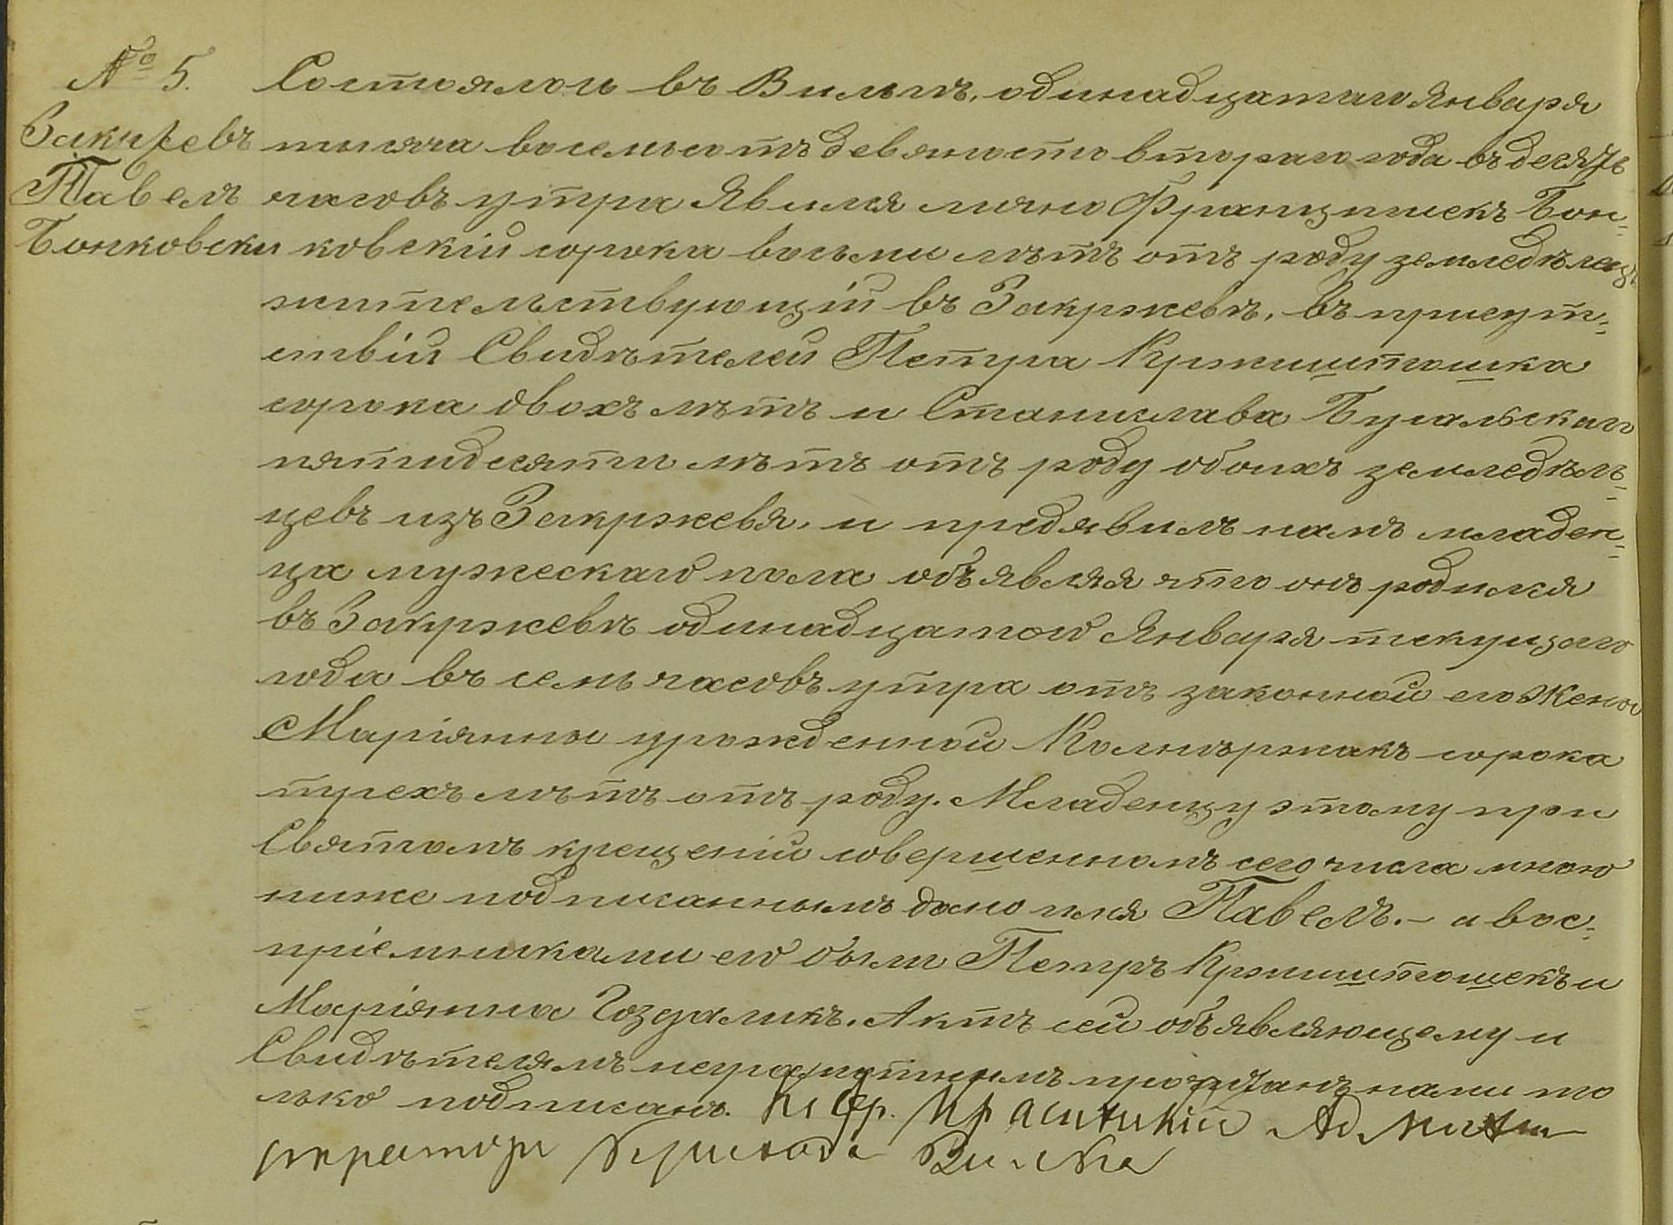 № 5. Состоялось въ Вильгѣ, одинадцатаго Января
Закржевъ тысяча восемьсотъ девяносто втораго года въ десять
Павелъ часовъ утра Явился лично Францишекъ Бон-
Бонковски ковскій сорока восьми лѣтъ отъ роду земледѣлецъ
жительствующій въ Закржевѣ, въ присут-
ствій Свидѣтелей Петра Кржиштошка
сорока двохъ лѣтъ и Станислава Бугальскаго
пятидесяти лѣтъ отъ роду обоихъ земледѣль-
цевъ изъ Закржевя, и предявилъ намъ младен-
ца мужескаго пола объявляя что онъ родился
въ Закржевѣ одинадцатого Января текущаго
года въ семь часовъ утра отъ законной его Жены
Маріянны урожденной сорока
трехъ лѣтъ отъ роду. Младенцу этому при
Святомъ крещеніи совершенномъ сего числа мною
ниже подписаннымъ дано имя Павелъ. - а вос-
пріемниками его были Петръ Кржиштошекъ и
Маріянна Гоздаликъ. Актъ сей объявляющему и
Свидѣтелямъ неграмотнымъ прочитанъ нами то
лько подписанъ. Админи
стратор Прихода Вильга